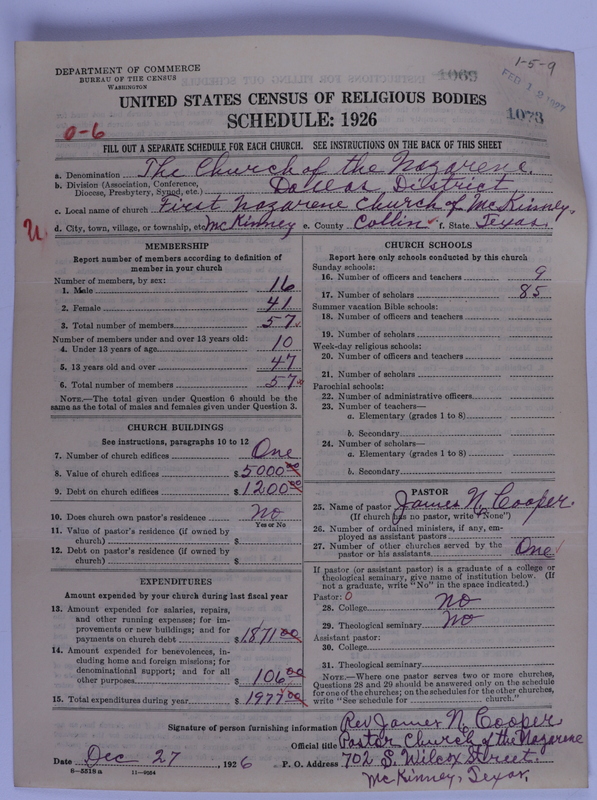 1-5-9
DEPARTMENT OF COMMERCE
BUREAU OF THE CENSUS
WASHINGTON
1063
FEB 12 1927
UNITED STATES CENSUS OF RELIGIOUS BODIES
SCHEDULE: 1926
1073
0-6
FILL OUT A SEPARATE SCHEDULE FOR EACH CHURCH. SEE INSTRUCTIONS ON THE BACK OF THIS SHEET
a. Denomination The Church of the Nazarene.
b. Division (Association, Conference, Diocese, Presbytery, Synod, etc.) Dallas District
c. Local name of church First Nazarene Church of McKinney.
d. City, town, village, or township, etc. McKinney e. County Collin f. State Texas.
MEMBERSHIP
Report number of members according to definition of
member in your church
Number of members, by sex:
1. Male 16
2. Female 41
3. Total number of members 57
Number of members under and over 13 years old:
4. Under 13 years of age 10
5. 13 years old and over 47
6. Total number of members 57
NOTE.—The total given under Question 6 should be the
same as the total of males and females given under Question 3.
CHURCH BUILDINGS
See instructions, paragraphs 10 to 12
7. Number of church edifices One
8. Value of church edifices $5000 00
9. Debt on church edifices $1200 00
10. Does church own pastor's residence No
Yes or No
11. Value of pastor's residence (if owned by
church) $
12. Debt on pastor's residence (if owned by
church) $
EXPENDITURES
Amount expended by your church during last fiscal year
13. Amount expended for salaries, repairs,
and other running expenses; for im-
provements or new buildings; and for
payments on church debt $1871 00
14. Amount expended for benevolences, in-
cluding home and foreign missions; for
denominational support; and for all
other purposes $106 00
15. Total expenditures during year $1977 00
CHURCH SCHOOLS
Report here only schools conducted by this church
Sunday schools:
16. Number of officers and teachers 9
17. Number of scholars 85
Summer vacation Bible schools:
18. Number of officers and teachers
19. Number of scholars
Week-day religious schools:
20. Number of officers and teachers
21. Number of scholars
Parochial schools:
22. Number of administrative officers
23. Number of teachers—
a. Elementary (grades 1 to 8)
b. Secondary
24. Number of scholars—
a. Elementary (grades 1 to 8)
b. Secondary
PASTOR
25. Name of pastor James N. Cooper.
(If church has no pastor, write "None")
26. Number of ordained ministers, if any, em-
ployed as assistant pastors
27. Number of other churches served by the
pastor or his assistants One
If pastor (or assistant pastor) is a graduate of a college or
theological seminary, give name of institution below. (If
not a graduate, write "No" in the space indicated.)
Pastor: 0
28. College No
29. Theological seminary No
Assistant pastor:
30. College
31. Theological seminary
NOTE.—Where one pastor serves two or more churches,
Questions 28 and 29 should be answered only on the schedule
for one of the churches; on the schedules for the other churches,
write "See schedule for church."
Signature of person furnishing information Rev James N. Cooper
Official title Pastor Church of the Nazarene
Date Dec 27, 1926 P. O. Address 702 S. Wilcox Street.
8—5518 a 11—9054
McKinney, Texas.